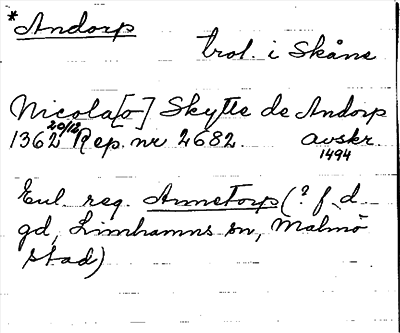 *Andorp
trol. i Skåne
Nicola[o] Skytte de Andorp
1362 20/12 Rep. nr 2682. avskr.
1494
Enl reg. Annetorp (? f. d.
gd, Limhamns sn, Malmö
stad)